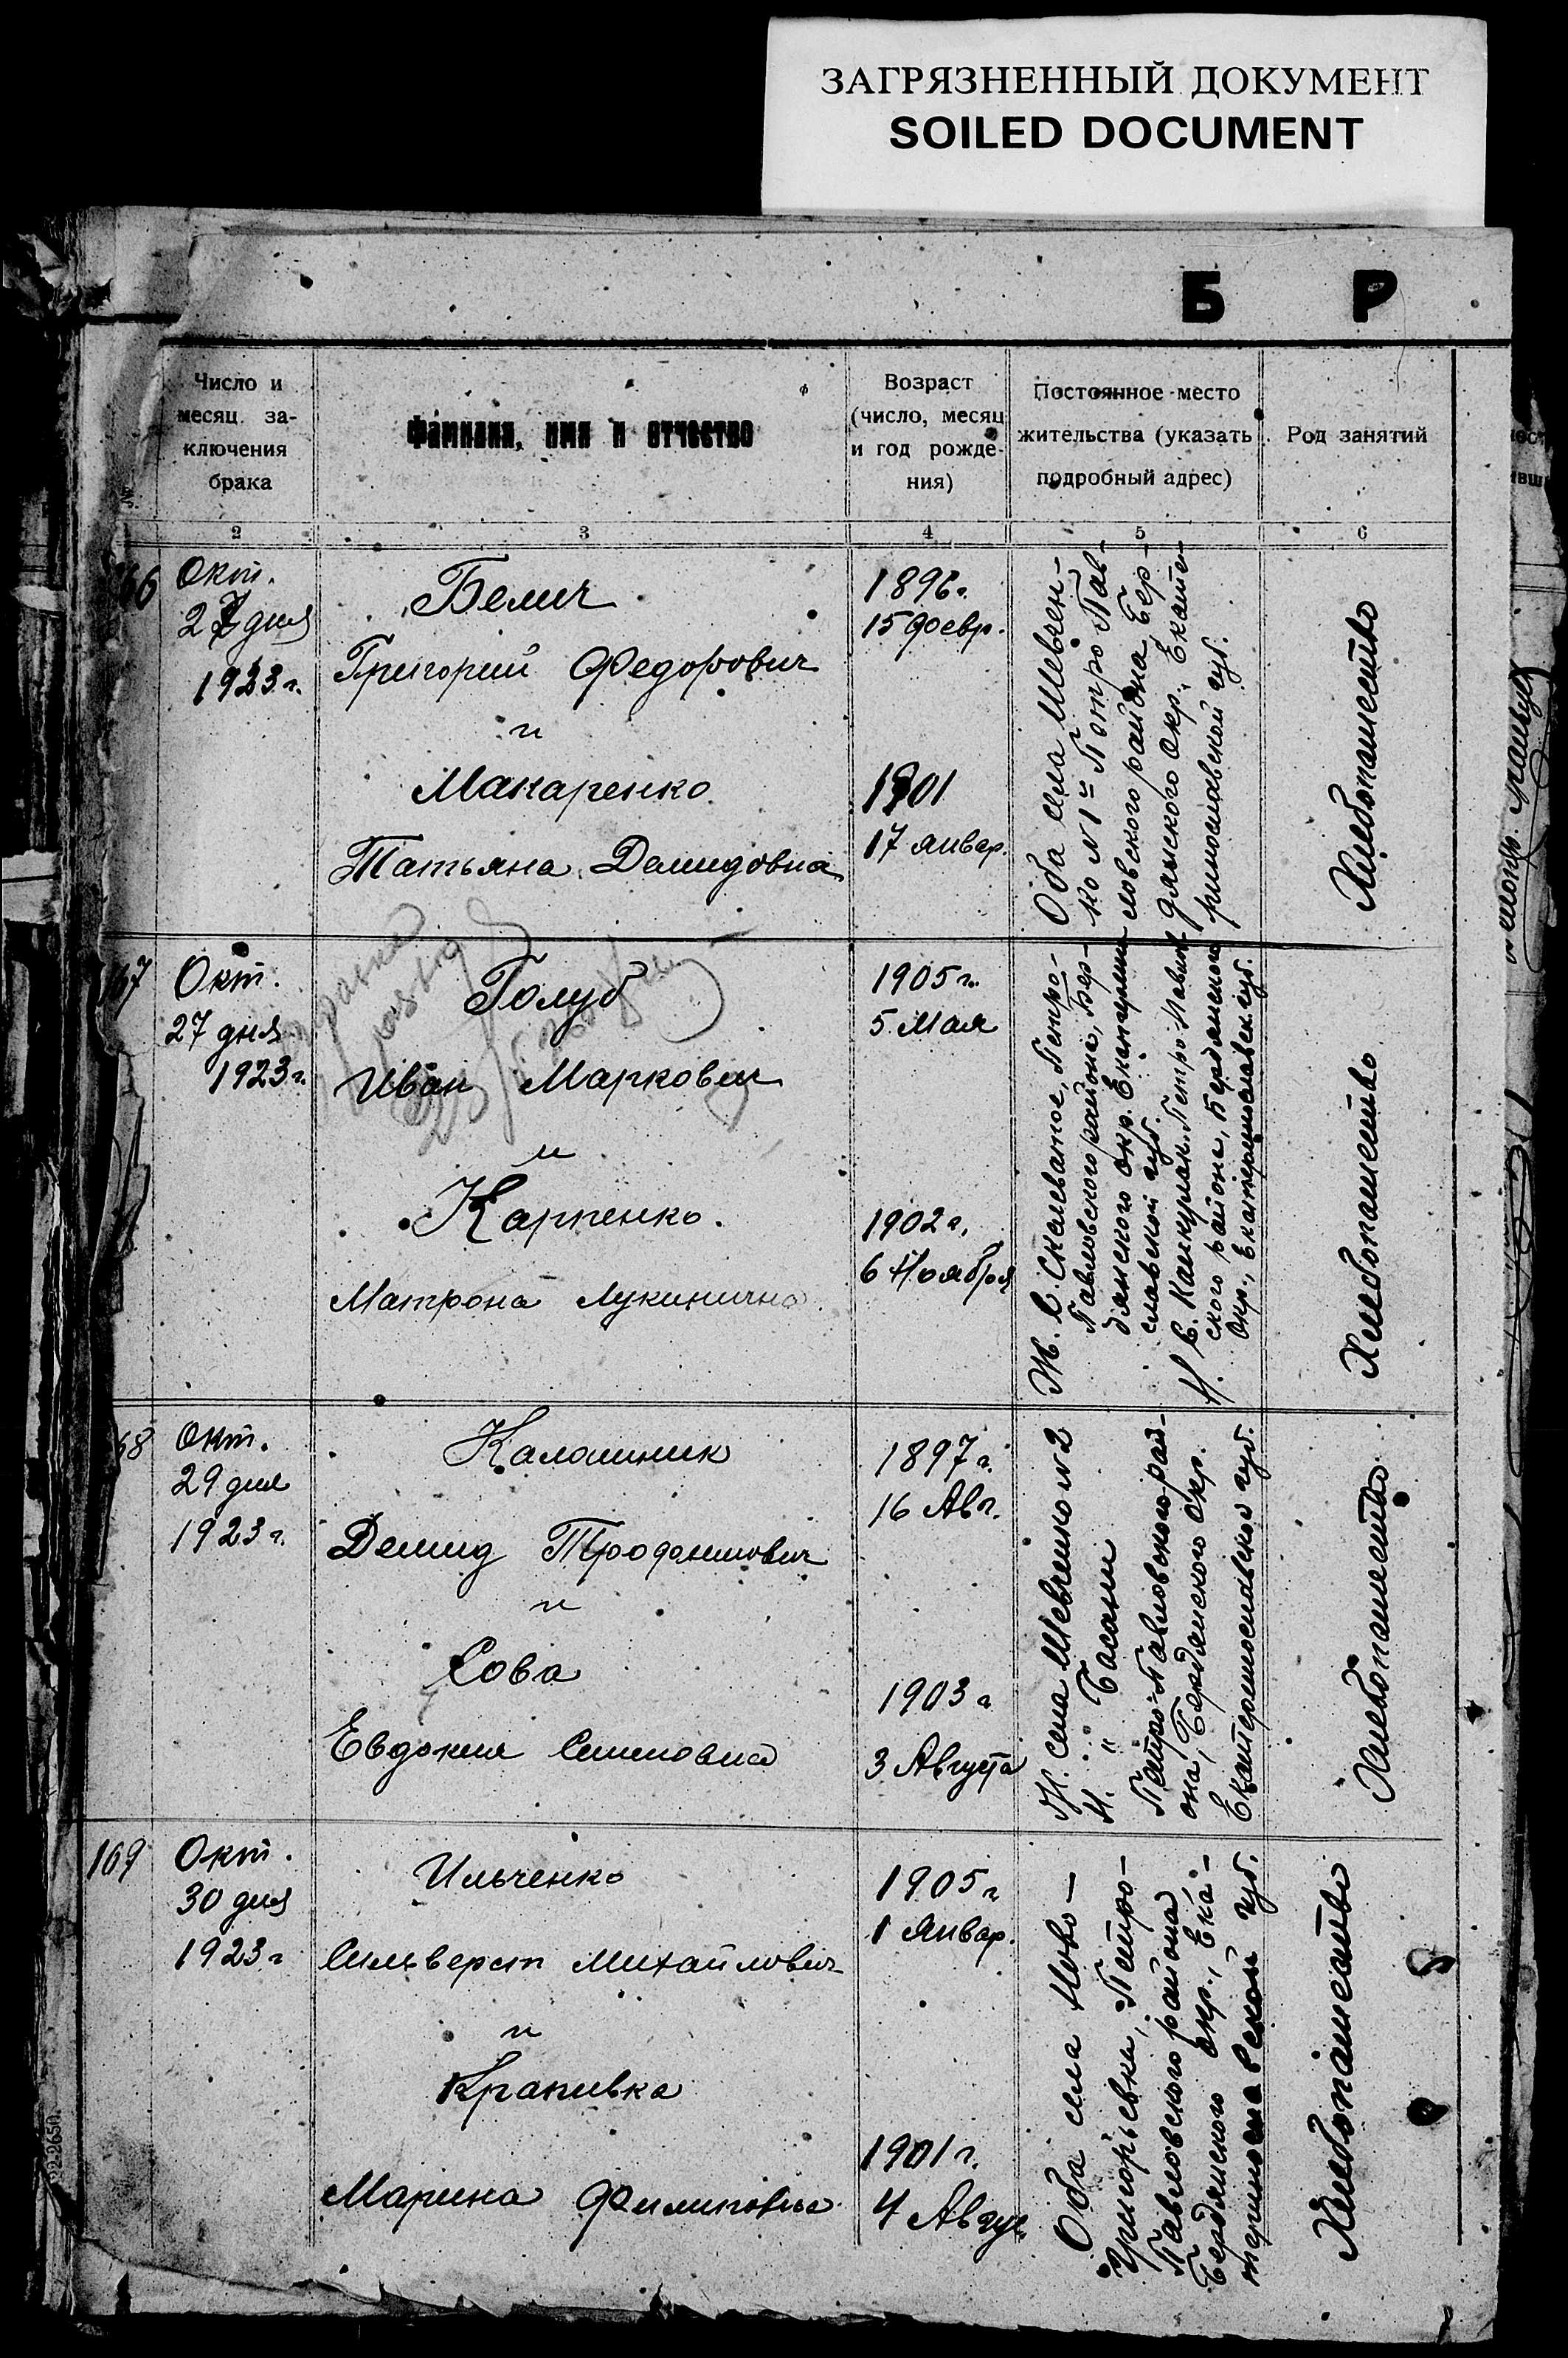 ЗАГРЯЗНЕННЫЙ ДОКУМЕНТ
SOILED DOCUMENT
Б Р
Число и
месяц за-
ключения
брака
Фамилия, имя и отчество
Возраст
(число, месяц
и год рожде-
ния)
Постоянное место
жительства (указать
подробный адрес)
Род занятий
2 3 4 5 6
66
Окт.
27 дня
1923 г.
Белич
Григорий Федорович
и
Макаренко
Татьяна Демидовна
1896 г.
15 февр.
1901
17 январ.
Оба села Шевчен-
ко №1 Петро Пав-
ловского района Бер-
дянского Окр., Екате-
ринославской губ.
Хлебопашество
67
Окт.
27 дня
1923 г.
Голуб
Иван Маркович
и
Карпенко
Матрона Лукинична
1905 г.
5 Мая
1902 г.
6 Ноября
Ж. с. Скелеватое, Петро-
Павловского района, Бер-
дянского окр. Екатерино
славской губ.
Н. с. Канкрин. Петро Павлов
ского района, Бердянского
Окр., Екатеринославск. губ.
Хлебопашество
68
Окт.
29 дня
1923 г.
Калашник
Демид Трофимович
и
Сова
Евдокия Семеновна
1897 г.
16 Авг.
1903 г
3 Августа
Ж. села Шевченко №2
Н. " Басани
Петро-Павловского рай-
она, Бердянского Окр.
Екатеринославской губ.
Хлебопашество
169
Окт.
30 дня
1923 г
Ильченко
Сильверст Михайлович
и
Крапивка
Марина Филиповна
1905 г
1 Январ.
1901 г.
4 Авгус
Оба села Ново-
Григорьевки, Петро-
Павловского района
Бердянского окр., Ека-
теринославской губ.
Хлебопашество
22-2650.